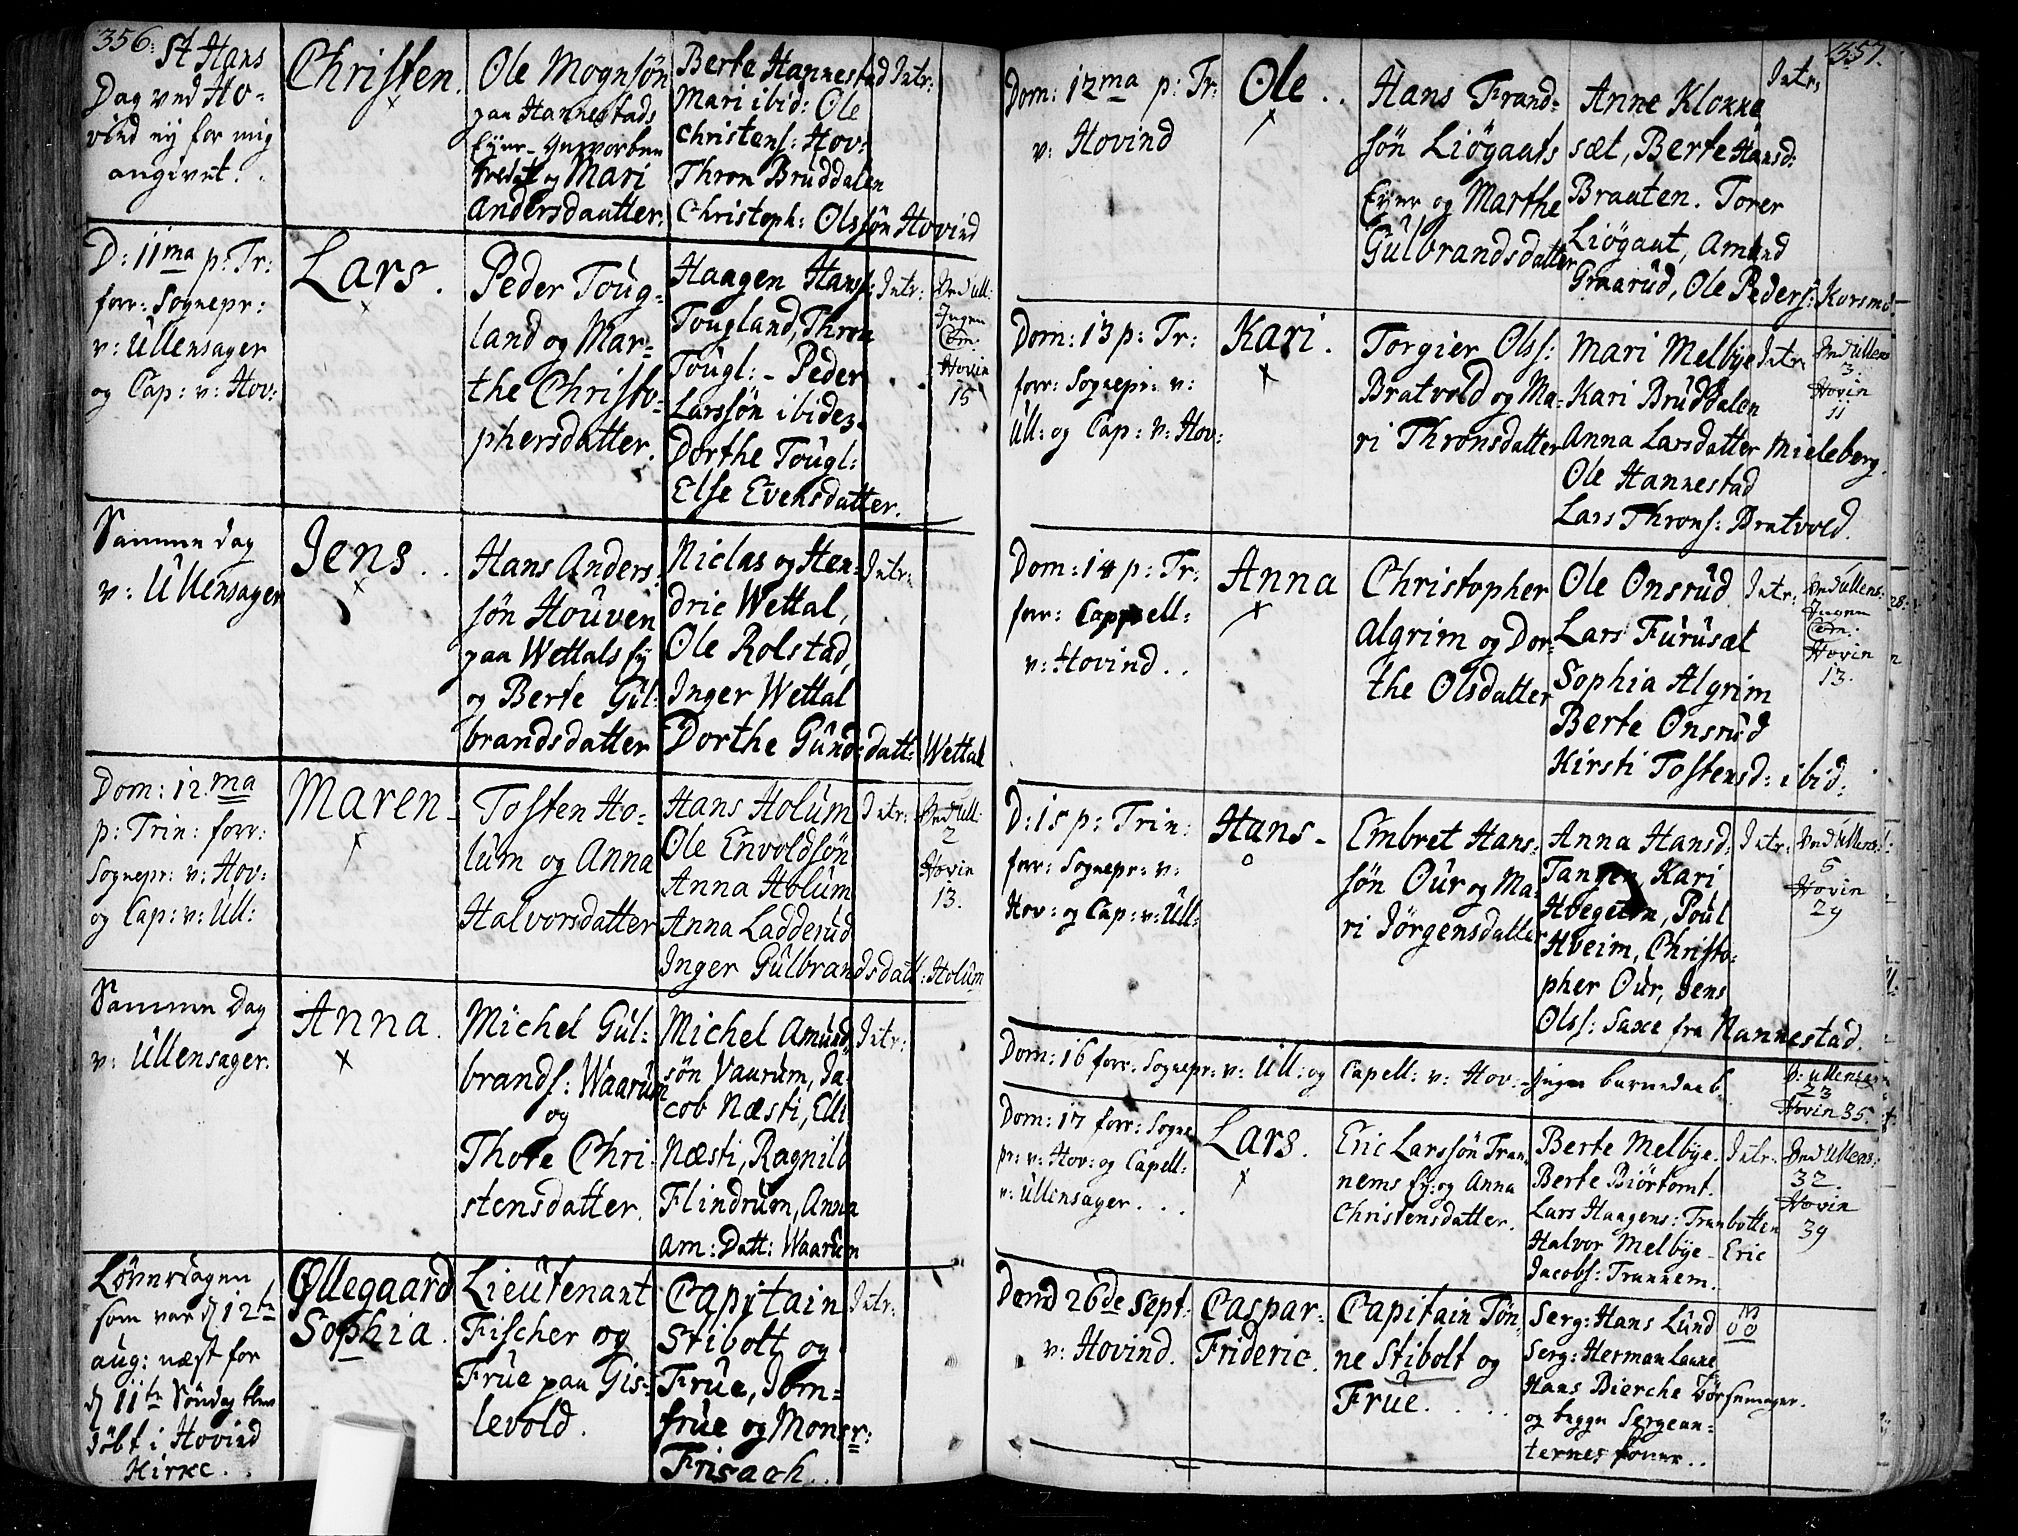 356.
St Hans
Dag ved Ho-
vind ey for mig
angivet.
Christen.
Ole Mognsøn
paa Hannestads
Eyer og Mari
Andersdaatter.
Berte Hannestad
Mari ibid: Ole
Christens: Hov:
Thron Bruddalen
Christoph: Olssøn Hovind
Intr:
D: 11ma p: Tr:
forr: Sognepr:
v: Ullensager
og Cap: v: Hov:
Lars.
Peder Toug-
land og Mar-
the Christo-
phersdatter.
Haagen Hans:
Tougland, Thron
Tougl: - Peder
Larssøn ibidem
Dorthe Tougl:
Else Evensdatter.
Intr:
Ved Ull:
Ingen
Com:
Hovin
15
Samme dag
v: Ullensager
Jens..
Hans Anders-
søn Houven
paa Wettals Ey
og Berte Gul-
brandsdatter
Niclas og Hen-
dric Wettal,
Ole Rolstad,
Inger Wettal
Dorthe Gund: datt: Wettal
Intr:
Dom: 12.ma
p: Trin: forr:
Sognepr: v: Hov:
og Cap: v: Ull:
Maren-
Tosten Ho-
lum og Anna
Halvorsdatter
Hans Holum
Ole Envoldsøn
Anna Holum
Anna Ladderud
Inger Gulbrandsdatt: Holum
Intr:
Ved Ull:
2
Hovin
13.
Samme Dag
v: Ullensager.
Anna.
Michel Gul-
brands: Waarum
og
Thore Chri-
stensdatter.
Michel Amund
søn Vaarum, Ja-
cob Næsti, Elli
Næsti, Ragnild
Flindrum, Anna
Am: Datt: Waarum
Intr:
Løverdagen
som var d 12te
Aug: næst for
d 11te Søndag blev
døbt i Hovind
Kirke.
Øllegaard
Sophia.
Lieutenant
Fischer og
Frue paa Gis-
levold.
Capitain
Stibolt og
Frue, Jom-
frue og Monsr:
Frisach..
Intr:
357.
Dom: 12ma p: Tr:
v: Hovind
Ole..
Hans Frand-
søn Liøgaats
Eyer og Marthe
Gulbrandsdatter
Anne Klokke
sæt, Berte Hansd:
Braaten. Torer
Liøgaat, Amund
Graarud, Ole Peders: Korsmo-
Intr:
Dom: 13 p: Tr:
forr: Sognepr: v:
Ull: og Cap: v: Hov:
Kari.
Torgier Olss:
Bratvold og Ma-
ri Thronsdatter
Mari Melbye
Kari Bruddalen
Anna Larsdatter Mieleberg.
Ole Hannestad
Lars Throns: Bratvold.
Intr:
Ved Ullens
3.
Hovin
11
Dom: 14 p: Tr:
forr: Cappell:
v: Hovind..
Anna
Christopher
Algrim og Dor-
the Olsdatter
Ole Onsrud
Lars Furusæt
Sophia Algrim
Berte Onsrud
Kirsti Tostensd: ibid:
Intr:
Ved Ullens:
Ingen
Com:
Hovin
13.
D: 15 p: Trin:
forr: Sognepr: v:
Hov: og Cap: v: Ull:
Hans-
Embret Hans-
søn Our og Ma-
ri Jørgensdatter
Anna Hansd:
Tangen, Kari
Hoegern, Poul
Hveim, Christo-
pher Our, Jens
Olss: Saxe fra Nannestad.
Intr:
Ved Ullens:
5
Hovin
29
Dom: 16 forr: Sognepr: v: Ull: og Capell: v: Hov:-Ingen barnedaab.
v: Ullensager
23
Hovin 35.
Dom: 17 forr: Sogne
pr: v: Hov: og Capell:
v: Ullensager...
Lars.
Eric Larssøn Tran-
nems Ey: og Anna
Christensdatter.
Berte Melbye.
Berte Biørtomt.
Lars Haagens: Tranbotten
Halvor Melbye- Eric
Jacobs: Trannem.
Intr:
Ved Ullens:
32.
Hovin
39
Dend 26de Sept:
v: Hovind.
Caspar-
Frideric.
Capitain Tøn-
ne Stibolt og
Frue....
Serg: Hans Lund
Serg: Herman Lane
Hans Bierche Børsemager.
og begge Sergean-
ternes koner..